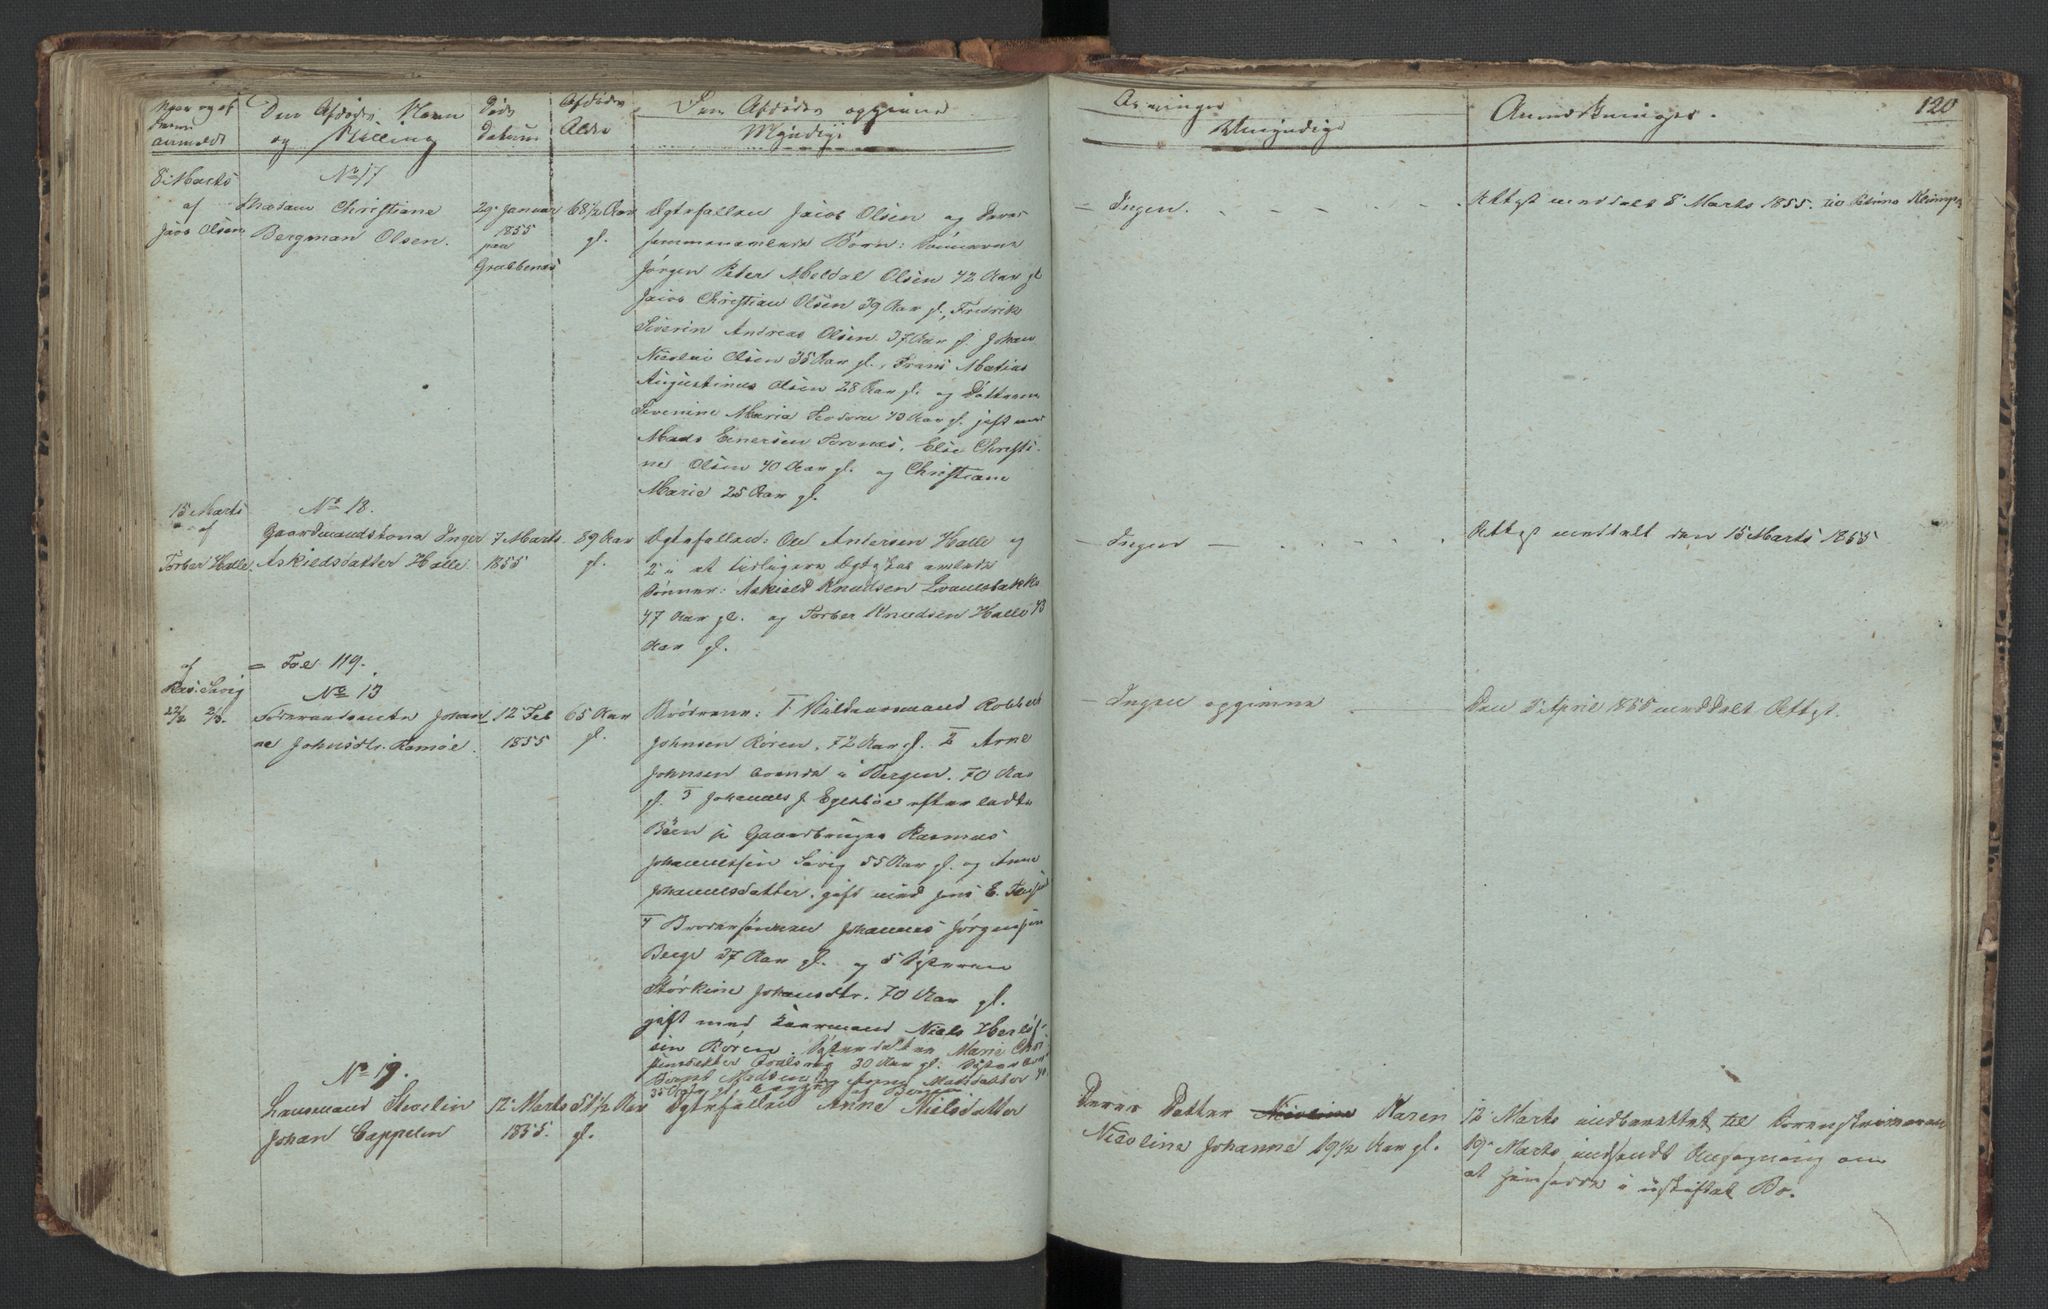 120
Naar og af
hvem
anmeldt
Den Afdødes Navn
og Stilling
Døds
Datum
Afdødes
Alder
Den Afdødes opgivne
Myndige
Arvinger
Umyndige
Anmærkninger.
8 Marts
af
Jacob Olsen
No 17
Madam Christiane
Bergman Olsen.
29 Januar
1855
paa
Grabbenæs
68 1/2 Aar
gl.
Ægtefællen Jacob Olsen og deres
sammenavlede Børn: Sønnerne
Jørgen Peter Meldal Olsen 42 Aar gl
Jacob Christian Olsen 39 Aar gl., Fredrik
Severin Andreas Olsen 37 Aar gl. Johan
Nicolai Olsen 35 Aar gl., Frans Matias
Augustinus Olsen 28 Aar gl. og Døttrene
Severine Maria Teodora 43 Aar gl. gift med
Mads Einersen Tornæs, Else Christi-
ne Olsen 40 Aar gl. og Christiane
Marie 25 Aar gl.
Ingen.
Attest meddelt 8 Marts 1855.
15 Marts
af
Torber Halle
No 18.
Gaardmandskona Inger
Askieldsdatter Halle.
7 Marts
1855
89 Aar
gl.
Ægtefællen: Ole Andersen Halle og
2 i et tidligere Ægteskab avlede
Sønner: Askield Knudsen
47 Aar gl. og Torber Knudsen Halle 43
Aar gl.
Ingen
Attest meddelt den 15 Marts 1855
af
Ras. Sævig
22/2 2/3.
= Fol 119.
No 13
Føderaadsenke Johan
ne Johnsdtr. Ramsøe.
12 Feb
1855
65 Aar
gl.
Brødrene: 1 Huusmand Robbert
Johnsen Røren, 72 Aar gl. 2 Arne
Johnsen boende i Bergen. 70 Aar
gl. 3 Johannes J. Egesbøe efterladte
Børn Gaardbruger Rasmus
Johannessen Sævig 55 Aar gl. og Anne
Johannesdatter. gift med Jens E.
4 Brodersønnen Johannes Jørgensen
Berge 37 Aar gl. og 5 Systeren
Størkine Johnsdtr. 70 Aar gl.
gift med Niels
Røren. Systerdatteren Marie
30 Aar gl.
Bernt Madsen og Anne Madsdatter 40.
35 Aar gl.
Ingen opgivne
Den 3 April 1855 meddelt Attest.
No 19.
Lensmand Severin
Johan Cappelen
12 Marts
1855.
51 1/2 Aar
gl.
Ægtefællen Anne Nielsdatter
Deres Datter Karen
Nicoline Johanne 19 1/2 Aar gl.
12 Marts indberettet til Sorenskriveren
19 Marts indsendt Ansøgning om
at hensidde i uskiftet Bo.